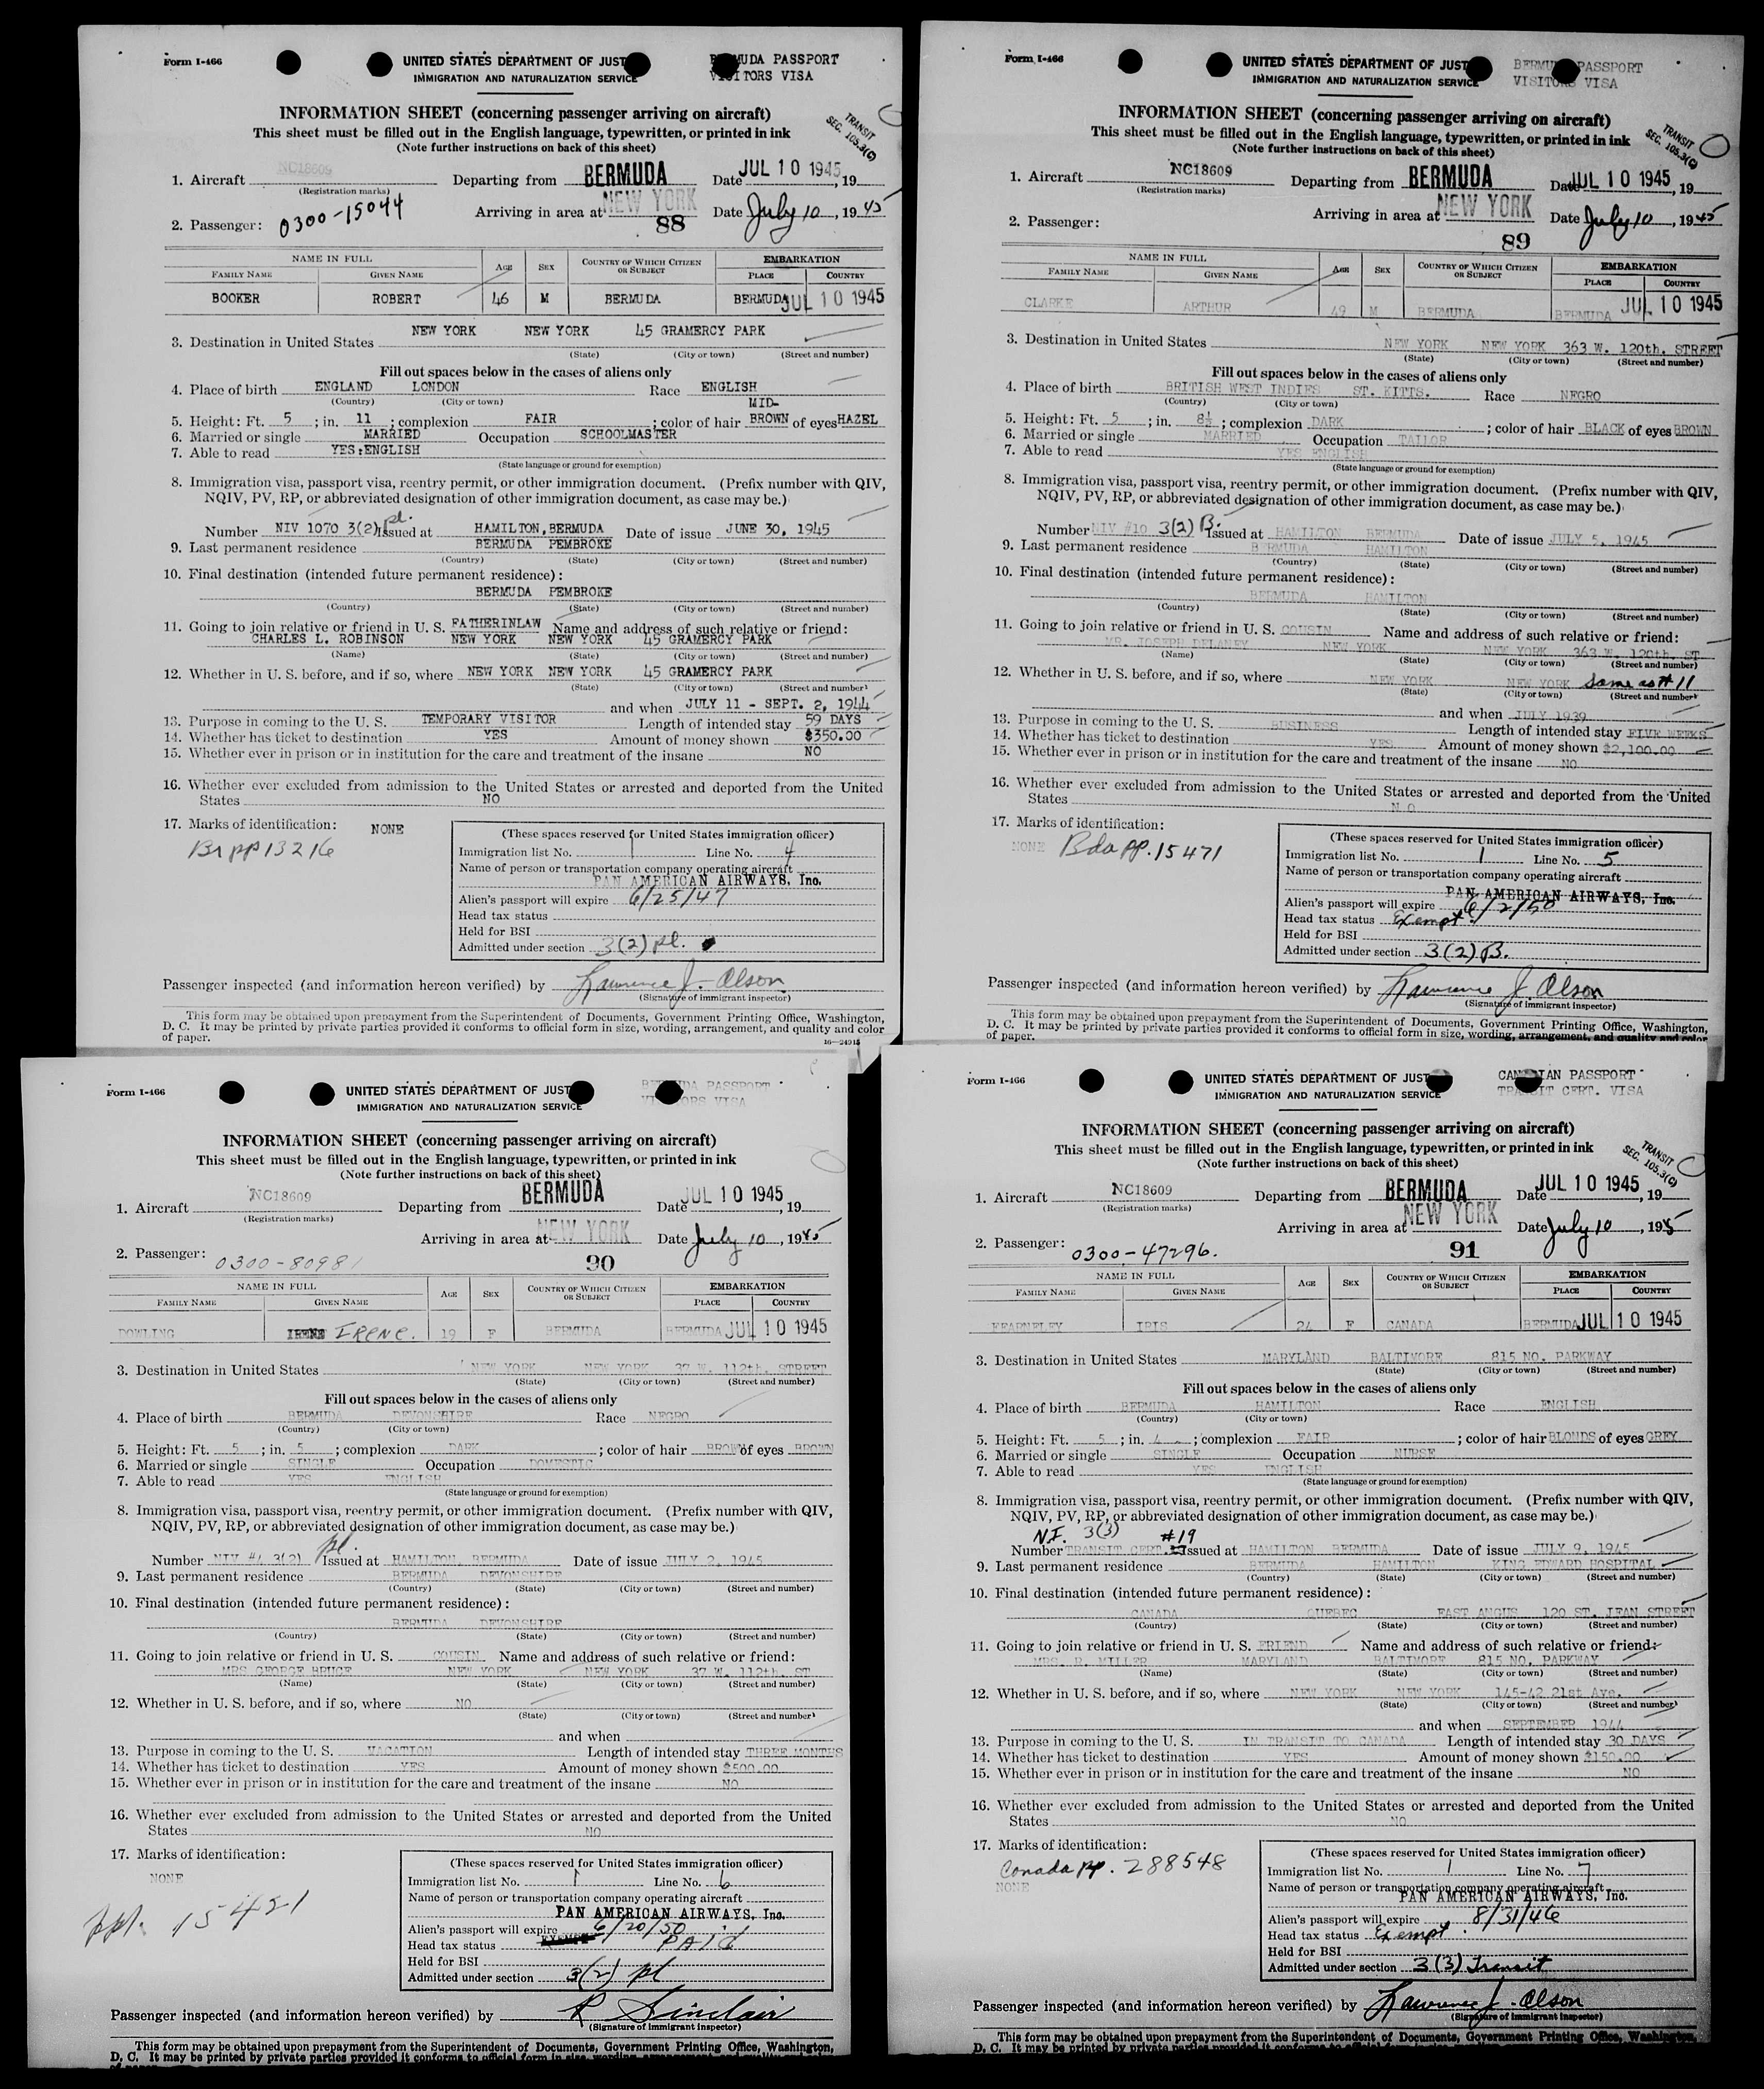 Form I-466
UNITED STATES DEPARTMENT OF JUST
BERMUDA PASSPORT
IMMIGRATION AND NATURALIZATION SERVICE
VISITORS VISA
INFORMATION SHEET (concerning passenger arriving on aircraft)
This sheet must be filled out in the English language, typewritten, or printed in ink
(Note further instructions on back of this sheet)
TRANSIT
SEC. 105.3(c)
1. Aircraft NC18609 Departing from BERMUDA Date JUL 10 1945, 19
(Registration marks)
Arriving in area at NEW YORK Date July 10, 1945
2. Passenger: 0300-15044
88
NAME IN FULL AGE SEX COUNTRY OF WHICH CITIZEN OR SUBJECT EMBARKATION
FAMILY NAME GIVEN NAME PLACE COUNTRY
BOOKER ROBERT 46 M BERMUDA BERMUDA JUL 10 1945
NEW YORK NEW YORK 45 GRAMERCY PARK
3. Destination in United States
(State) (City or town) (Street and number)
Fill out spaces below in the cases of aliens only
4. Place of birth ENGLAND LONDON Race ENGLISH
(Country) (City or town) MID-
5. Height: Ft. 5; in. 11; complexion FAIR; color of hair BROWN of eyes HAZEL
6. Married or single MARRIED Occupation SCHOOLMASTER
7. Able to read YES:ENGLISH
(State language or ground for exemption)
8. Immigration visa, passport visa, reentry permit, or other immigration document. (Prefix number with QIV,
NQIV, PV, RP, or abbreviated designation of other immigration document, as case may be.)
Number NIV 1070 3(2) pl. Issued at HAMILTON, BERMUDA Date of issue JUNE 30, 1945
9. Last permanent residence BERMUDA PEMBROKE
(Country) (State) (City or town) (Street and number)
10. Final destination (intended future permanent residence):
BERMUDA PEMBROKE
(Country) (State) (City or town) (Street and number)
11. Going to join relative or friend in U. S. FATHERINLAW Name and address of such relative or friend:
CHARLES L. ROBINSON NEW YORK NEW YORK 45 GRAMERCY PARK
(Name) (State) (City or town) (Street and number)
12. Whether in U. S. before, and if so, where NEW YORK NEW YORK 45 GRAMERCY PARK
(State) (City or town) (Street and number)
and when JULY 11 - SEPT. 2, 1944
13. Purpose in coming to the U. S. TEMPORARY VISITOR Length of intended stay 59 DAYS
14. Whether has ticket to destination YES Amount of money shown $350.00
15. Whether ever in prison or in institution for the care and treatment of the insane NO
16. Whether ever excluded from admission to the United States or arrested and deported from the United
States NO
17. Marks of identification: NONE
Br pp 13216
(These spaces reserved for United States immigration officer)
Immigration list No. 1 Line No. 4
Name of person or transportation company operating aircraft
PAN AMERICAN AIRWAYS, Inc.
Alien's passport will expire 6/25/47
Head tax status
Held for BSI
Admitted under section 3(2) pl.
Passenger inspected (and information hereon verified) by Lawrence J. Olson
(Signature of immigrant inspector)
This form may be obtained upon prepayment from the Superintendent of Documents, Government Printing Office, Washington,
D. C. It may be printed by private parties provided it conforms to official form in size, wording, arrangement, and quality and color
of paper.
Form I-466
UNITED STATES DEPARTMENT OF JUST
BERMUDA PASSPORT
IMMIGRATION AND NATURALIZATION SERVICE
VISITORS VISA
INFORMATION SHEET (concerning passenger arriving on aircraft)
This sheet must be filled out in the English language, typewritten, or printed in ink
(Note further instructions on back of this sheet)
TRANSIT
SEC. 105.3(c)
1. Aircraft NC18609 Departing from BERMUDA Date JUL 10 1945, 19
(Registration marks)
Arriving in area at NEW YORK Date July 10, 1945
2. Passenger:
89
NAME IN FULL AGE SEX COUNTRY OF WHICH CITIZEN OR SUBJECT EMBARKATION
FAMILY NAME GIVEN NAME PLACE COUNTRY
CLARKE ARTHUR 49 M BERMUDA BERMUDA JUL 10 1945
3. Destination in United States NEW YORK NEW YORK 363 W. 120th. STREET
(State) (City or town) (Street and number)
Fill out spaces below in the cases of aliens only
4. Place of birth BRITISH WEST INDIES ST. KITTS. Race NEGRO
(Country) (City or town)
5. Height: Ft. 5; in. 8½; complexion DARK; color of hair BLACK of eyes BROWN
6. Married or single MARRIED Occupation TAILOR
7. Able to read YES ENGLISH
(State language or ground for exemption)
8. Immigration visa, passport visa, reentry permit, or other immigration document. (Prefix number with QIV,
NQIV, PV, RP, or abbreviated designation of other immigration document, as case may be.)
Number NIV #10 3(2) B. Issued at HAMILTON BERMUDA Date of issue JULY 5, 1945
9. Last permanent residence BERMUDA HAMILTON
(Country) (State) (City or town) (Street and number)
10. Final destination (intended future permanent residence):
BERMUDA HAMILTON
(Country) (State) (City or town) (Street and number)
11. Going to join relative or friend in U. S. COUSIN Name and address of such relative or friend:
MR. JOSEPH DELANEY NEW YORK NEW YORK 363 W. 120th. ST
(Name) (State) (City or town) (Street and number)
12. Whether in U. S. before, and if so, where NEW YORK NEW YORK Same as # 11
(State) (City or town) (Street and number)
and when JULY 1939
13. Purpose in coming to the U. S. BUSINESS Length of intended stay FIVE WEEKS
14. Whether has ticket to destination YES Amount of money shown $2,100.00
15. Whether ever in prison or in institution for the care and treatment of the insane NO
16. Whether ever excluded from admission to the United States or arrested and deported from the United
States NO
17. Marks of identification:
NONE Bda pp. 15471
(These spaces reserved for United States immigration officer)
Immigration list No. 1 Line No. 5
Name of person or transportation company operating aircraft
PAN AMERICAN AIRWAYS, Inc.
Alien's passport will expire 6/2/50
Head tax status Exempt
Held for BSI
Admitted under section 3(2) B.
Passenger inspected (and information hereon verified) by Lawrence J. Olson
(Signature of immigrant inspector)
This form may be obtained upon prepayment from the Superintendent of Documents, Government Printing Office, Washington,
D. C. It may be printed by private parties provided it conforms to official form in size, wording, arrangement, and quality and color
of paper.
Form I-466
UNITED STATES DEPARTMENT OF JUST
BERMUDA PASSPORT
IMMIGRATION AND NATURALIZATION SERVICE
VISITORS VISA
INFORMATION SHEET (concerning passenger arriving on aircraft)
This sheet must be filled out in the English language, typewritten, or printed in ink
(Note further instructions on back of this sheet)
1. Aircraft NC18609 Departing from BERMUDA Date JUL 10 1945, 19
(Registration marks)
Arriving in area at NEW YORK Date July 10, 1945
2. Passenger: 0300-80981
90
NAME IN FULL AGE SEX COUNTRY OF WHICH CITIZEN OR SUBJECT EMBARKATION
FAMILY NAME GIVEN NAME PLACE COUNTRY
DOWLING IRENE. 19 F BERMUDA BERMUDA JUL 10 1945
3. Destination in United States NEW YORK NEW YORK 37 W. 112th. STREET
(State) (City or town) (Street and number)
Fill out spaces below in the cases of aliens only
4. Place of birth BERMUDA DEVONSHIRE Race NEGRO
(Country) (City or town)
5. Height: Ft. 5; in. 5; complexion DARK; color of hair BROW of eyes BROWN
6. Married or single SINGLE Occupation DOMESTIC
7. Able to read YES ENGLISH
(State language or ground for exemption)
8. Immigration visa, passport visa, reentry permit, or other immigration document. (Prefix number with QIV,
NQIV, PV, RP, or abbreviated designation of other immigration document, as case may be.)
Number NIV #4 3(2) pl. Issued at HAMILTON, BERMUDA Date of issue JULY 2, 1945
9. Last permanent residence BERMUDA DEVONSHIRE
(Country) (State) (City or town) (Street and number)
10. Final destination (intended future permanent residence):
BERMUDA DEVONSHIRE
(Country) (State) (City or town) (Street and number)
11. Going to join relative or friend in U. S. COUSIN Name and address of such relative or friend:
MRS GEORGE BRUCE NEW YORK NEW YORK 37 W. 112th. ST
(Name) (State) (City or town) (Street and number)
12. Whether in U. S. before, and if so, where NO
(State) (City or town) (Street and number)
and when
13. Purpose in coming to the U. S. VACATION Length of intended stay THREE MONTHS
14. Whether has ticket to destination YES Amount of money shown $500.00
15. Whether ever in prison or in institution for the care and treatment of the insane NO
16. Whether ever excluded from admission to the United States or arrested and deported from the United
States NO
17. Marks of identification:
NONE
ppt. 15421
(These spaces reserved for United States immigration officer)
Immigration list No. 1 Line No. 6
Name of person or transportation company operating aircraft
PAN AMERICAN AIRWAYS, Inc.
Alien's passport will expire 6/20/50
Head tax status PAID
Held for BSI
Admitted under section 3(2) pl
Passenger inspected (and information hereon verified) by R Sinclair
(Signature of immigrant inspector)
This form may be obtained upon prepayment from the Superintendent of Documents, Government Printing Office, Washington,
D. C. It may be printed by private parties provided it conforms to official form in size, wording, arrangement, and quality and
Form I-466
UNITED STATES DEPARTMENT OF JUST
CANADIAN PASSPORT
IMMIGRATION AND NATURALIZATION SERVICE
TRANSIT CERT. VISA
INFORMATION SHEET (concerning passenger arriving on aircraft)
This sheet must be filled out in the English language, typewritten, or printed in ink
(Note further instructions on back of this sheet)
TRANSIT
SEC. 105.3(c)
1. Aircraft NC18609 Departing from BERMUDA Date JUL 10 1945, 19
(Registration marks)
Arriving in area at NEW YORK Date July 10, 1945
2. Passenger: 0300-47296.
91
NAME IN FULL AGE SEX COUNTRY OF WHICH CITIZEN OR SUBJECT EMBARKATION
FAMILY NAME GIVEN NAME PLACE COUNTRY
KEARNELEY IRIS 24 F CANADA BERMUDA JUL 10 1945
3. Destination in United States MARYLAND BALTIMORE 815 NO. PARKWAY
(State) (City or town) (Street and number)
Fill out spaces below in the cases of aliens only
4. Place of birth BERMUDA HAMILTON Race ENGLISH
(Country) (City or town)
5. Height: Ft. 5; in. 4; complexion FAIR; color of hair BLONDS of eyes GREY
6. Married or single SINGLE Occupation NURSE
7. Able to read YES ENGLISH
(State language or ground for exemption)
8. Immigration visa, passport visa, reentry permit, or other immigration document. (Prefix number with QIV,
NQIV, PV, RP, or abbreviated designation of other immigration document, as case may be.)
N.I. 3(3) #19
Number TRANSIT CERT. Issued at HAMILTON BERMUDA Date of issue JULY 9, 1945
9. Last permanent residence BERMUDA HAMILTON KING EDWARD HOSPITAL
(Country) (State) (City or town) (Street and number)
10. Final destination (intended future permanent residence):
CANADA QUEBEC EAST ANGUS 120 ST. JEAN STREET
(Country) (State) (City or town) (Street and number)
11. Going to join relative or friend in U. S. FRIEND Name and address of such relative or friend:
MRS. R. MILLER MARYLAND BALTIMORE 815 NO. PARKWAY
(Name) (State) (City or town) (Street and number)
12. Whether in U. S. before, and if so, where NEW YORK NEW YORK 145-42 21st Ave.
(State) (City or town) (Street and number)
and when SEPTEMBER 1944
13. Purpose in coming to the U. S. IN TRANSIT TO CANADA Length of intended stay 30 DAYS
14. Whether has ticket to destination YES Amount of money shown $150.00
15. Whether ever in prison or in institution for the care and treatment of the insane NO
16. Whether ever excluded from admission to the United States or arrested and deported from the United
States NO
17. Marks of identification:
Canada pp. 288548
NONE
(These spaces reserved for United States immigration officer)
Immigration list No. 1 Line No. 7
Name of person or transportation company operating aircraft
PAN AMERICAN AIRWAYS, Inc.
Alien's passport will expire 8/31/46
Head tax status Exempt.
Held for BSI
Admitted under section 3(3) Transit
Passenger inspected (and information hereon verified) by Lawrence J. Olson
(Signature of immigrant inspector)
This form may be obtained upon prepayment from the Superintendent of Documents, Government Printing Office, Washington,
D. C. It may be printed by private parties provided it conforms to official form in size, wording, arrangement, and quality and color